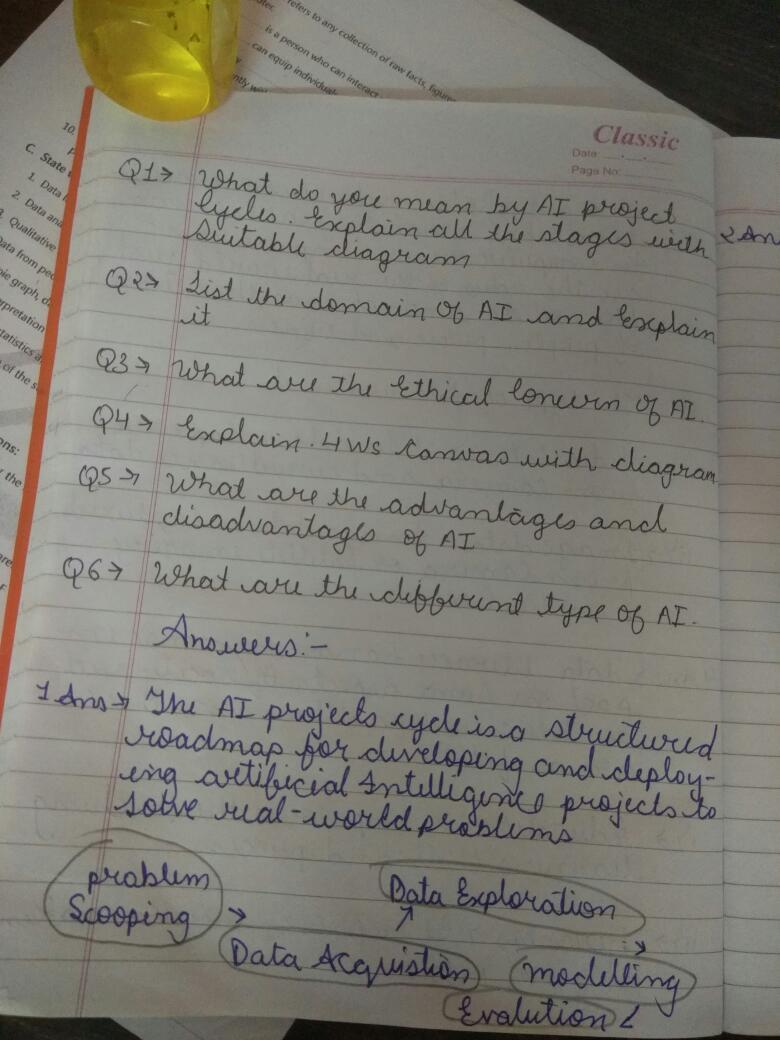 refers to any collection of raw facts, figure
is a person who can interact
can equip individual
ntly we
10.
C. State
1. Data
2. Data and
Qualitative
Data from peo
pie graph, d
rpretation
tatistics a
of the s
ons:
the
are
Classic
Date:
Page No:
Q1→ What do you mean by AI project
Cycles. Explain all the stages with
Suitable diagram
Q2→ List the domain of AI and Explain
it
Q3→ What are the Ethical Concern of AI.
Q4→ Explain. 4Ws Canvas with diagram
Q5→ What are the advantages and
disadvantages of AI
Q6→ What are the different type of AI.
Answers:-
1 Ans→ The AI projects cycle is a structured
roadmap for developing and deploy-
ing artificial Intelligence projects to
solve real-world problems
problem
Scooping →
Data Exploration
Data Acquistion
modelling
Evalution
2 An